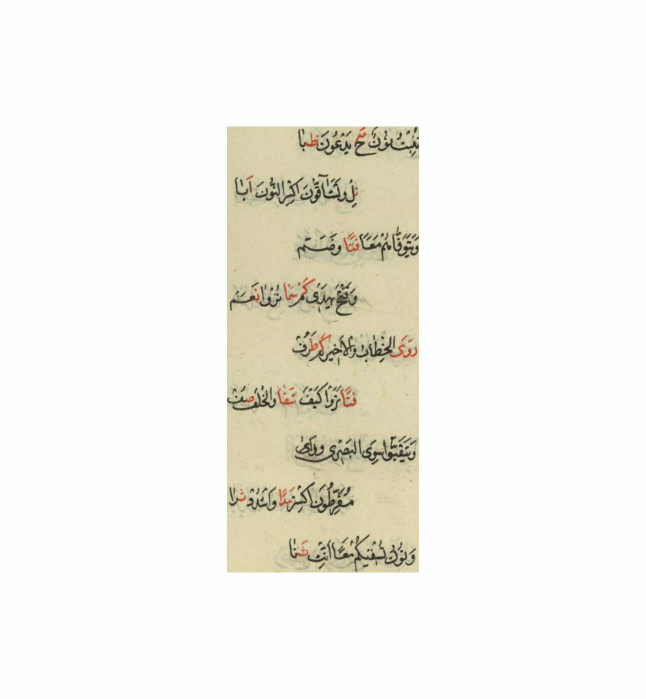 نُنْبِتُ نُونٌ صَحَّ يَدْعُونَ ظُبَا
نِلْ وَتُشَآقُّونَ اكْسِرِ النُّونَ أَبَا
وَيَتَوَفَّاهُمْ مَعًا فَتًا وَضَمّ
وَفَتْحُ يَهْدِي كَمْ سَمَا تَرَوْا نَعَمْ
رَوَى الخِطَابُ وَالأَخِيرُ كَمْ ظَرُفْ
فَتًا تَرَوْا كَيْفَ شَفَا وَالخُلْفُ صِفْ
وَيَتَفَيَّؤُا سِوَى البَصْرِى وَرَا
مُفَرِّطُونَ اكْسِرْ مَدًا وَاشْدُدْ ثَرَا
وَنُونُ نُسْقِيكُمُ مَعًا انِّثْ ثَنَا